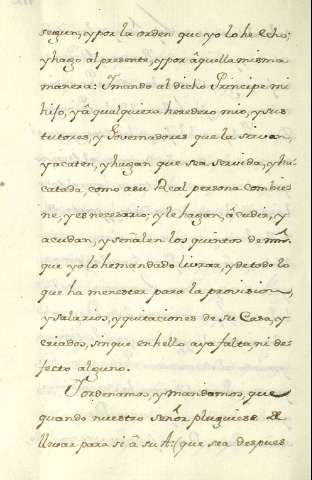 segun, y por la orden que yo lo he echo,
y hago al presente, y por aquella misma
manera: I mando al dicho Principe mi
hijo, y â qualquiera heredero mio, y sus
tutores, y Governadores que la sirvan,
y acaten, y hagan que sea servida, y
catada, como a su Real persona combie
ne, y es necesario; y le hagan, âcudir, y
acudan, y señalen los quintos de mrs.
que yo lo he mandado livrar, y de todo lo
que ha menester para la provision,
y salarios, y quitaciones de su Casa, y
criados, sin que en hello aya falta, ni de
fecto alguno.
I ordenamos, y mandamos, que
quando nuestro Señor pluguiese
llevar para si â su A: (que sea despues